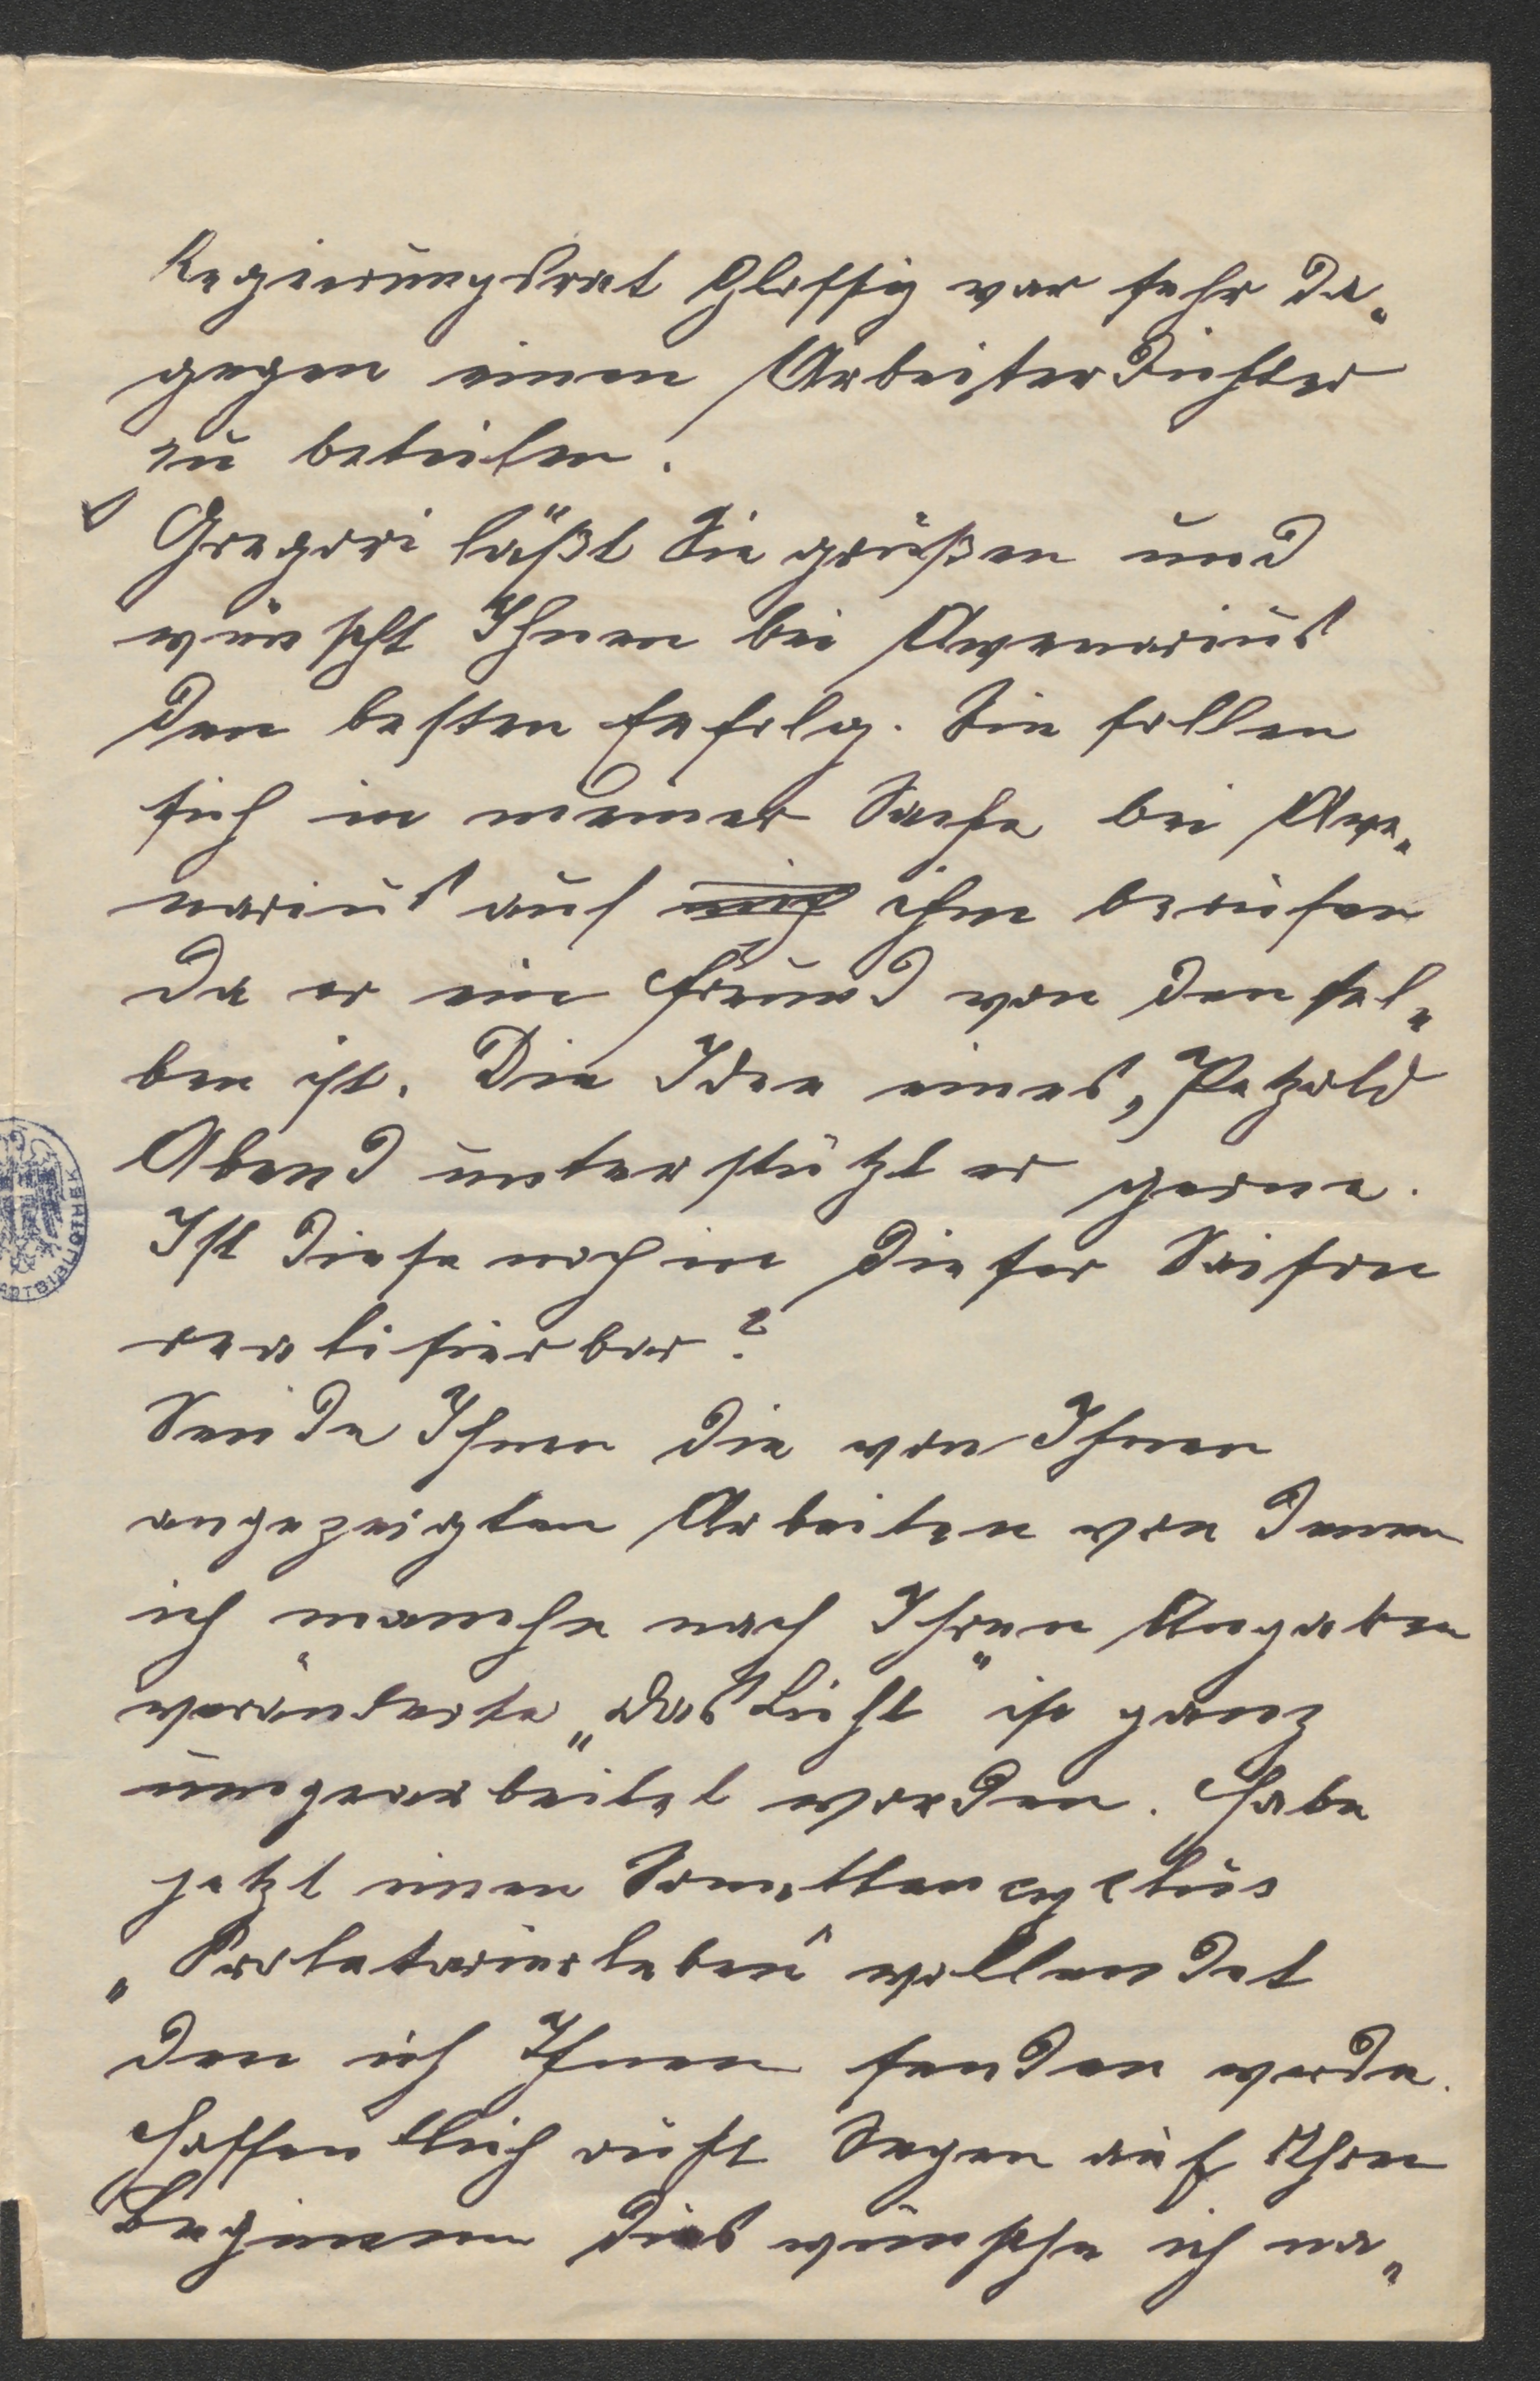 Regierungsrat Glossy war sehr da„
gegen einen Arbeiterdichter
zu beteilen.
Gregori läßt Sie grüßen und
wünscht Ihnen bei Avenarius
den besten Erfolg. Sie sollen
sich in meiner Sache bei Ave„
narius auf mich ihm berufen
da er ein Freund von den sel„
ben ist. Die Idee eines „Petzold
Abend unterstützt er gerne.
Ist diese noch in dieser Saison
realisierbar?
Sende Ihnen die von Ihnen
angezeigten Arbeiten von denen
ich manche nach Ihren Angaben
veränderte „das Licht" ist ganz
umgearbeitet worden. Habe
jetzt einen Sonettencyclus
„Proletarierleben" vollendet
den ich Ihnen senden werde.
Hoffentlich ruht Segen auf Ihren
Beginnen dies wünsche ich na„